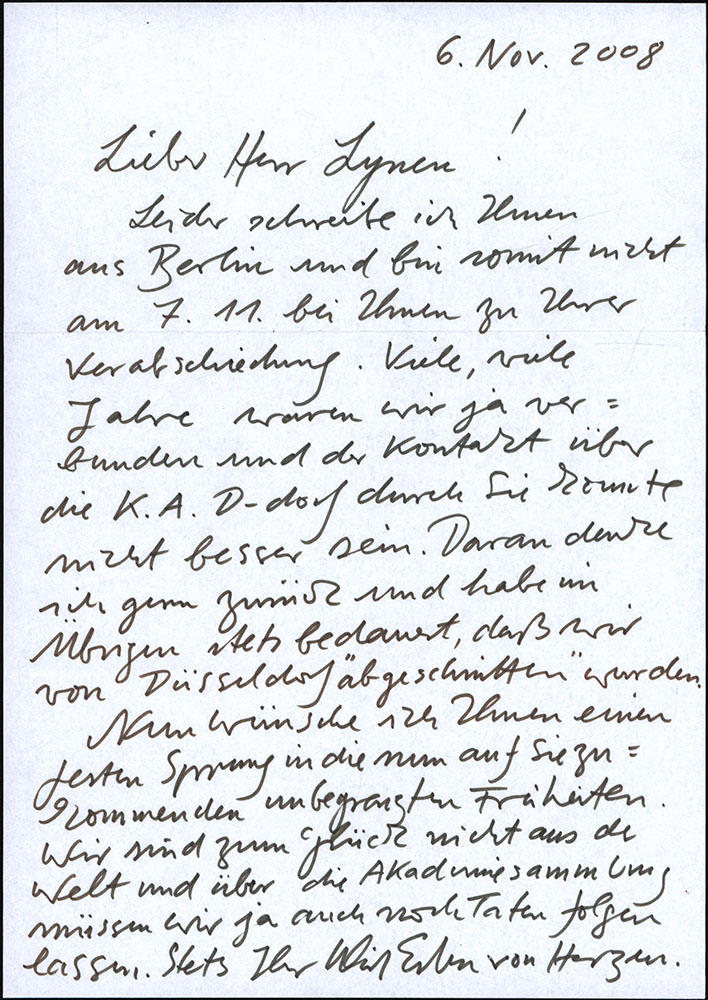 6. Nov. 2008
Lieber Herr Lynen !
Leider schreibe ich Ihnen
aus Berlin und bin somit nicht
am 7. 11. bei Ihnen zu Ihrer
Verabschiedung. Viele, viele
Jahre waren wir ja ver=
bunden und der Kontakt über
die K.A. D-dorf durch Sie konnte
nicht besser sein. Daran denke
ich gern zurück und habe im
Übrigen stets bedauert, daß wir
von Düsseldorf "abgeschnitten" wurden.
Nun wünsche ich Ihnen einen
festen Sprung in die nun auf Sie zu=
kommenden unbegrenzten Freiheiten.
Wir sind zum Glück nicht aus der
Welt und über die Akademiesammlung
müssen wir ja auch noch Taten folgen
lassen. Stets Ihr Erben von Herzen.